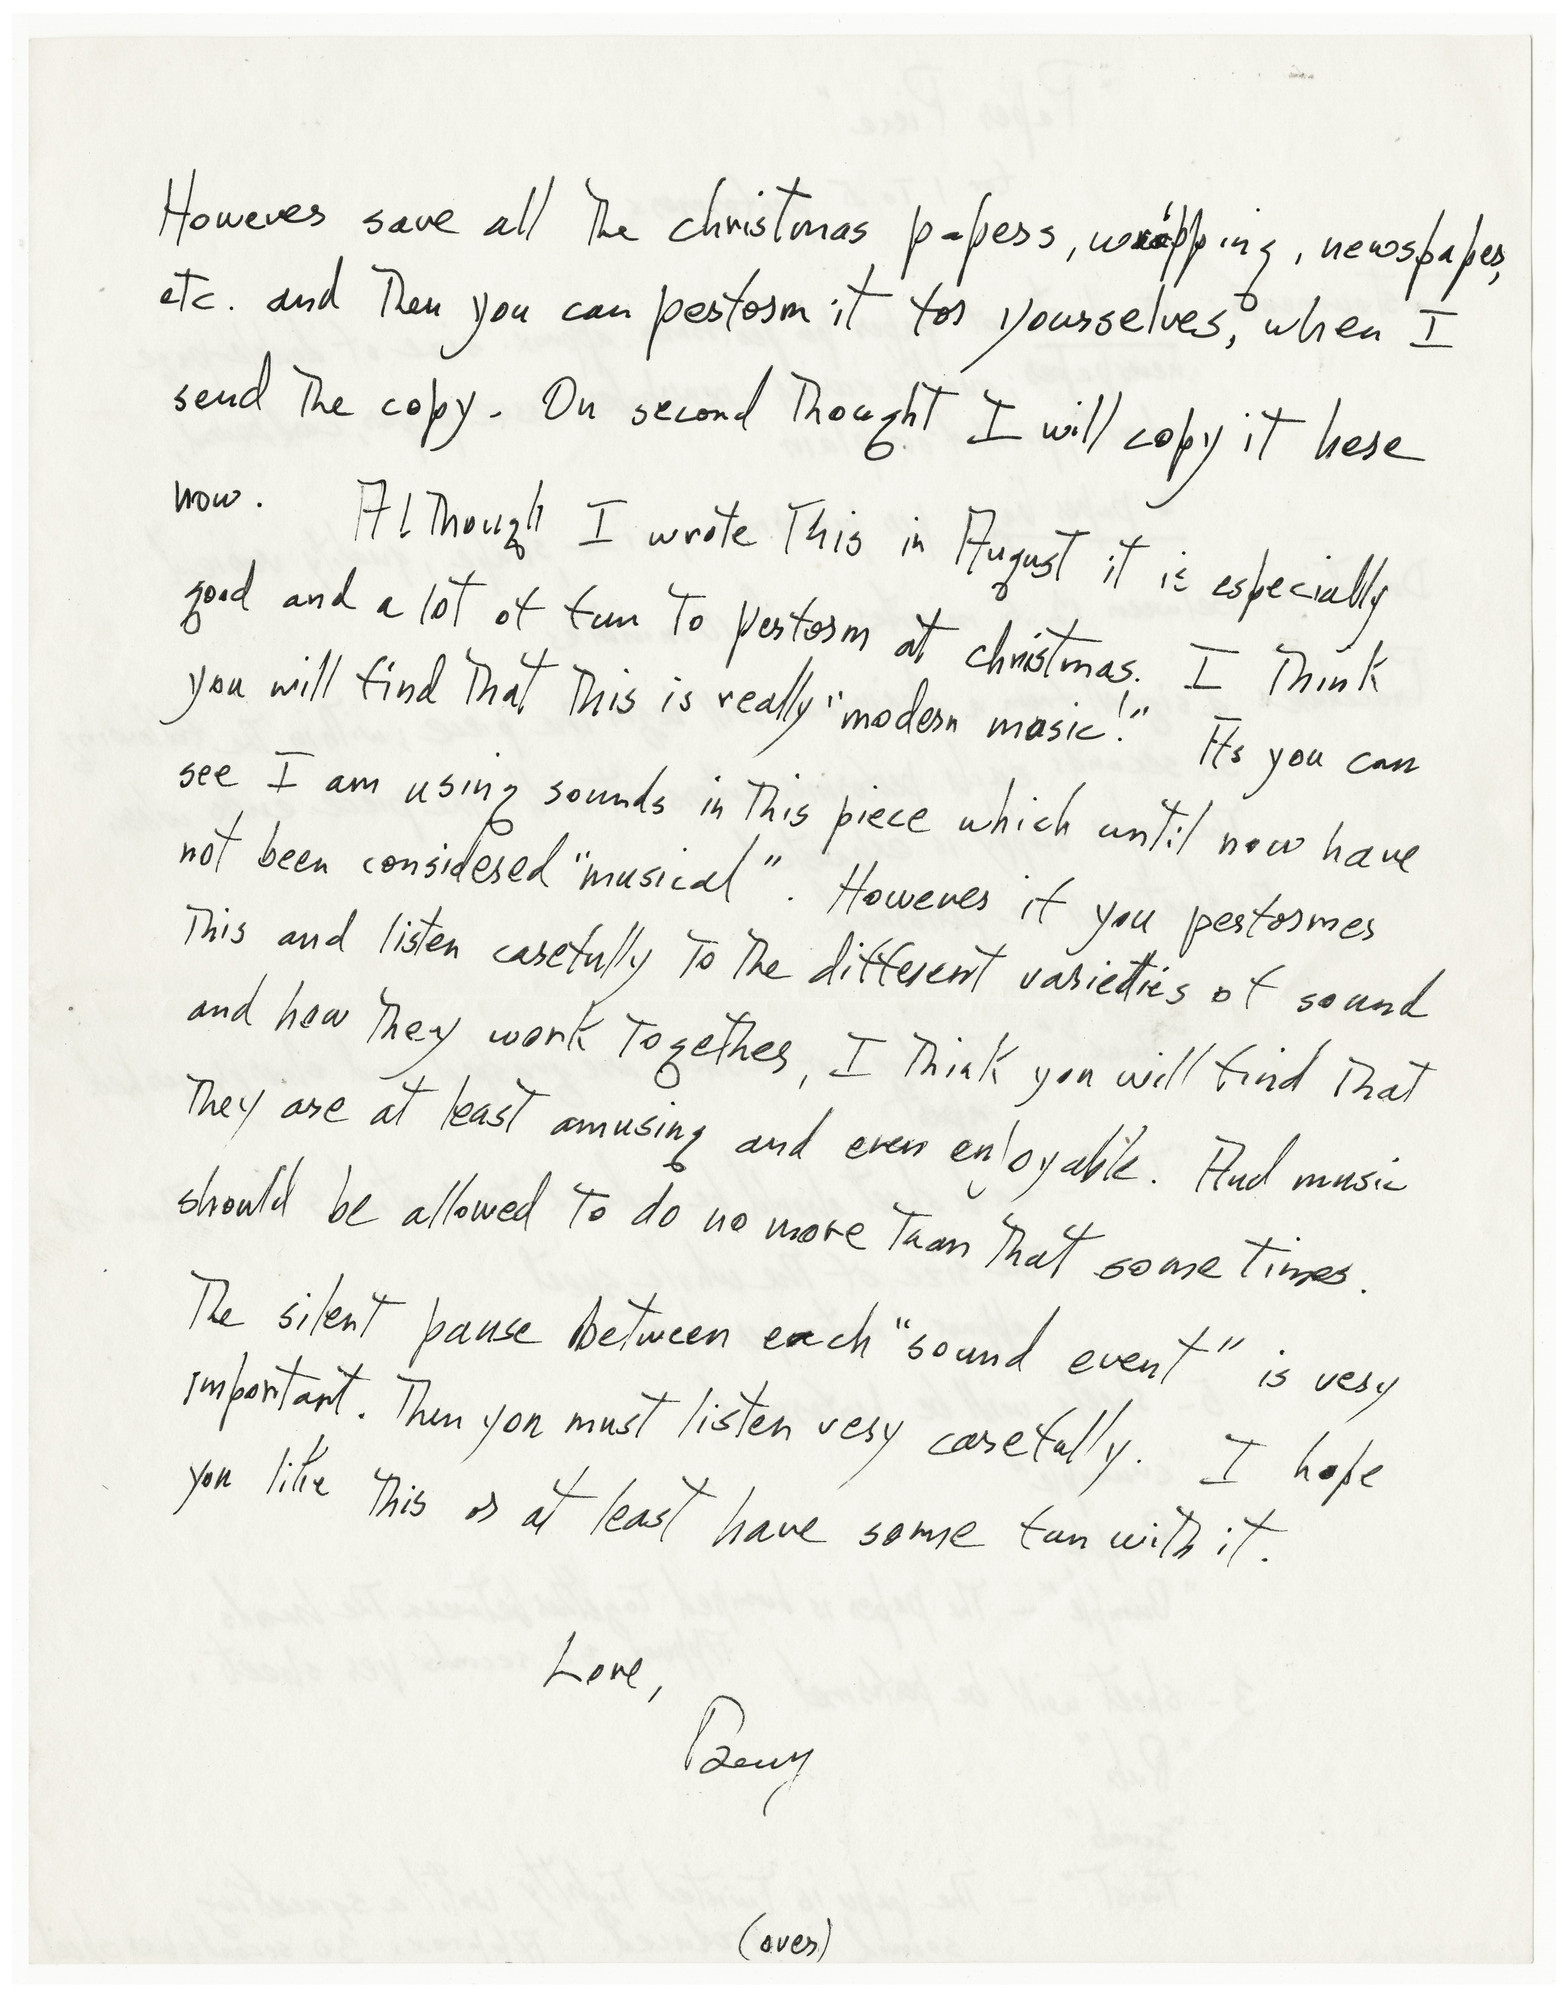 However save all the christmas papers, wrapping, newspaper,
etc. and then you can perform it for yourselves, when I
send the copy. On second thought I will copy it here
now. Although I wrote this in August it is especially
good and a lot of fun to perform at christmas. I think
you will find that this is really "modern music!" As you can
see I am using sounds in this piece which until now have
not been considered "musical". However if you performes
this and listen carefully to the different varieties of sound
and how they work together, I think you will find that
they are at least amusing and even enjoyable. And music
should be allowed to do no more than that some times.
The silent pause between each "sound event" is very
important. Then you must listen very carefully. I hope
you like this or at least have some fun with it.
Love,
Benny
(over)